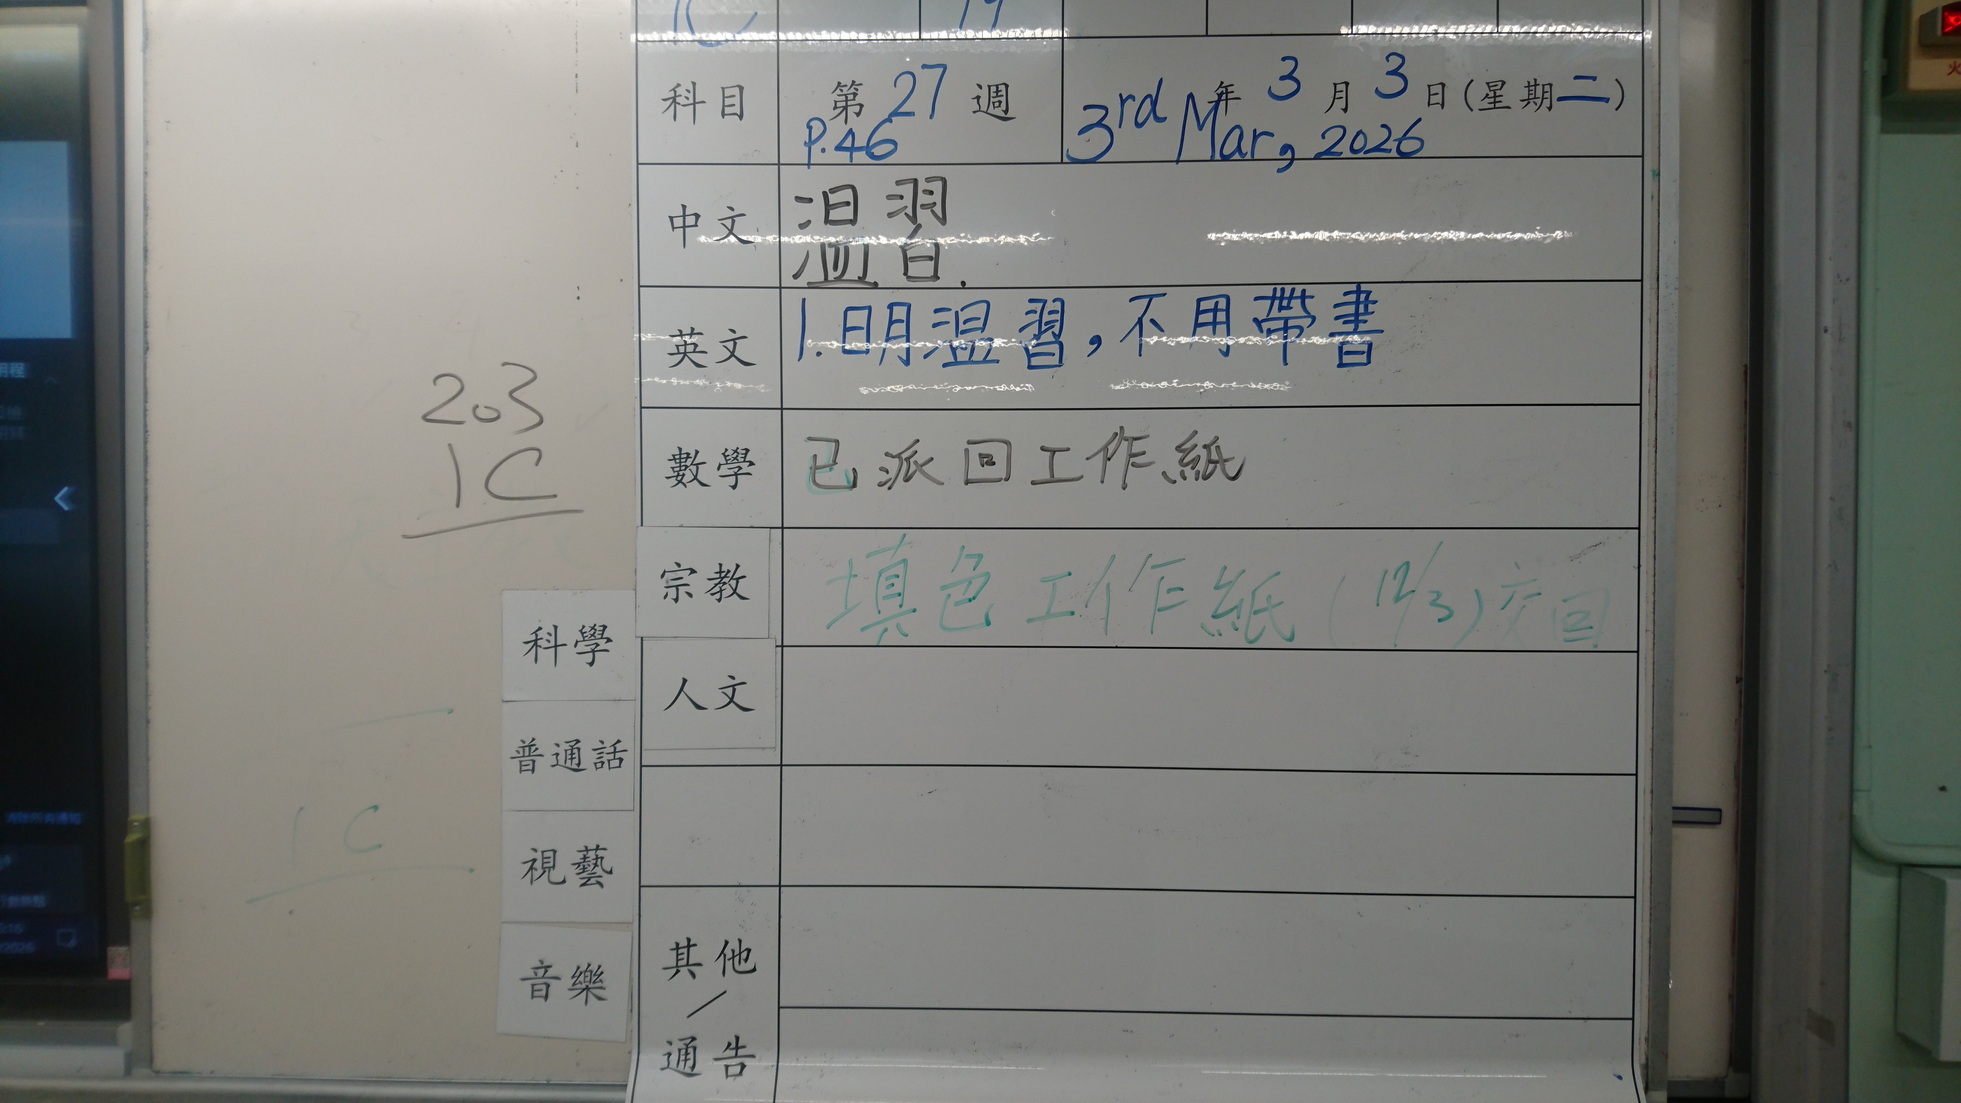 1C 19
科目 第27週 年3月3日(星期二)
P.46 3rd Mar, 2026
中文 溫習.
英文 1.明溫習,不用帶書
數學 已派回工作紙
宗教 填色工作紙(12/3)交回
人文
其他/通告
203
1C
科學
普通話
視藝
音樂
1C